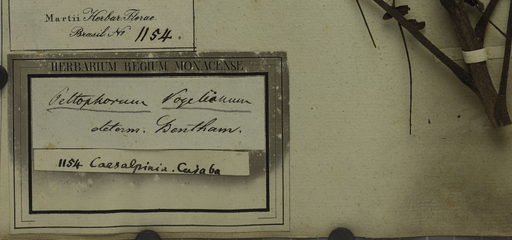 Martii Herbar. Florae
Brasil. No 1154.
HERBARIUM REGIUM MONACENSE
Peltophorum Vogelianum
determ. Bentham.
1154 Caesalpinia. Cuiaba